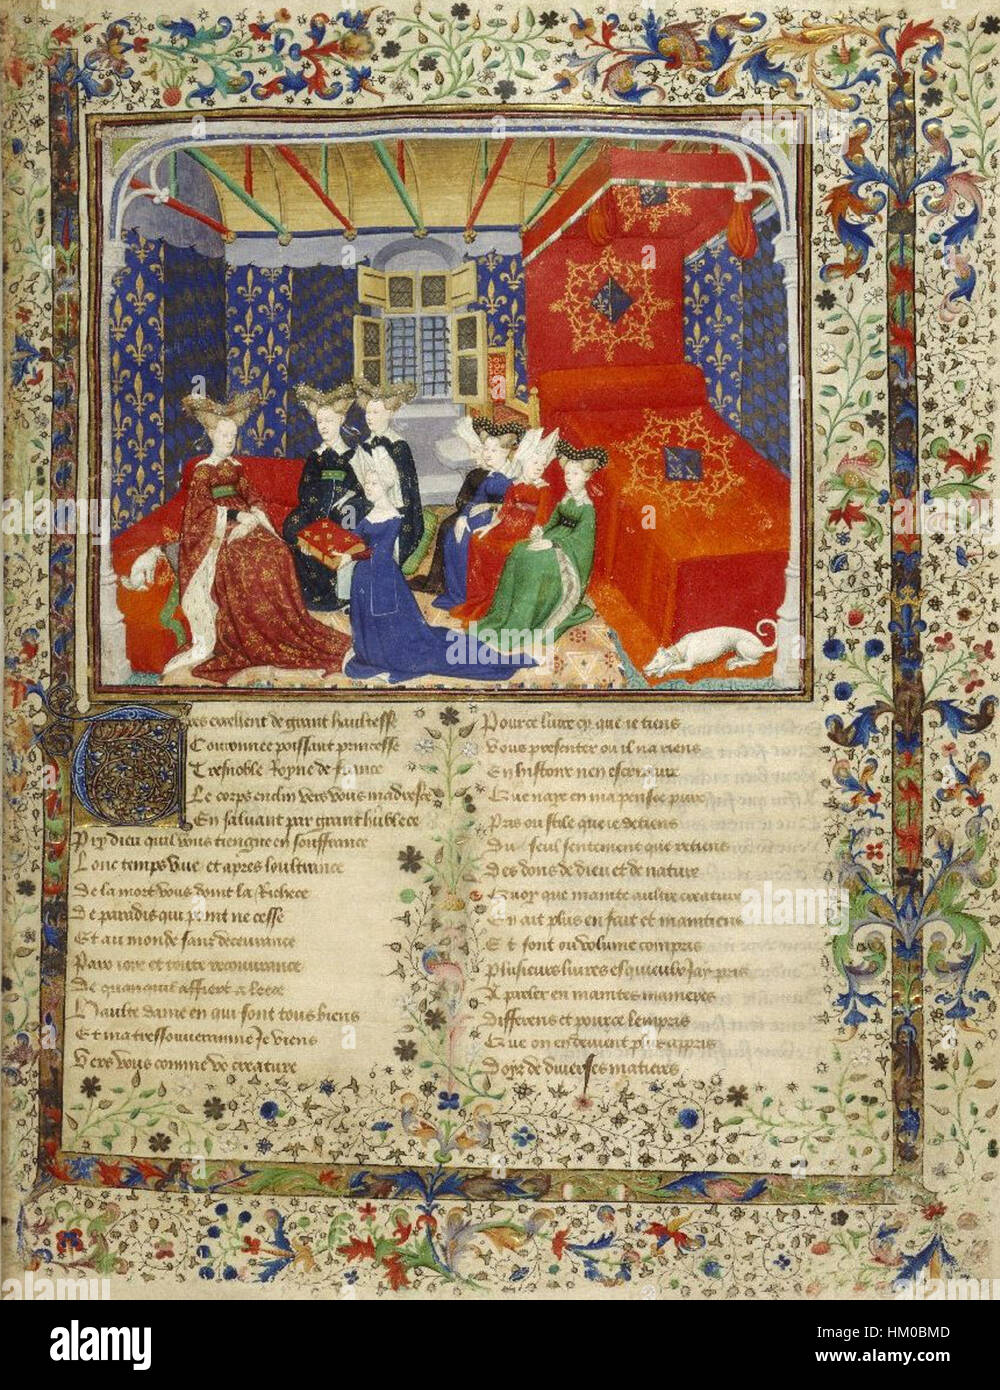 Tres excellent de grant haultesse
Couronnee poissant princesse
Tresnoble Royne de france
Le corps enclin vers vous madresce
En saluant par grant hublece
Pry dieu quil vous tiengne en souffrance
Lonc temps vive et apres loultrance
De la mort vous doint la Richece
De paradis qui point ne cesse
Et au monde sans decevrance
Paix ioye et toute recouvrance
De quanquil affiert a leece
Haulte dame en qui sont tous biens
Et ma tressouverainne Je viens
Vers vous comme vo creature
Pour ce livre cy que ie tiens
Vous presenter ou il na riens
En histoire nen escripture
Que naye en ma pensee pure
Pris ou stile que ie detiens
Du seul sentement que retiens
Des dons de dieu et de nature
Quoy que mainte aultre creature
En ait plus en fait et maintiens
Et sont ou volume compris
Plusieurs livres esquieulx Jay pris
A parler en maintes manieres
Differens et pource lempris
Que on en devient plus appris
Doyr de diverses matieres
alamy stock photo
HM0BMD
www.alamy.com